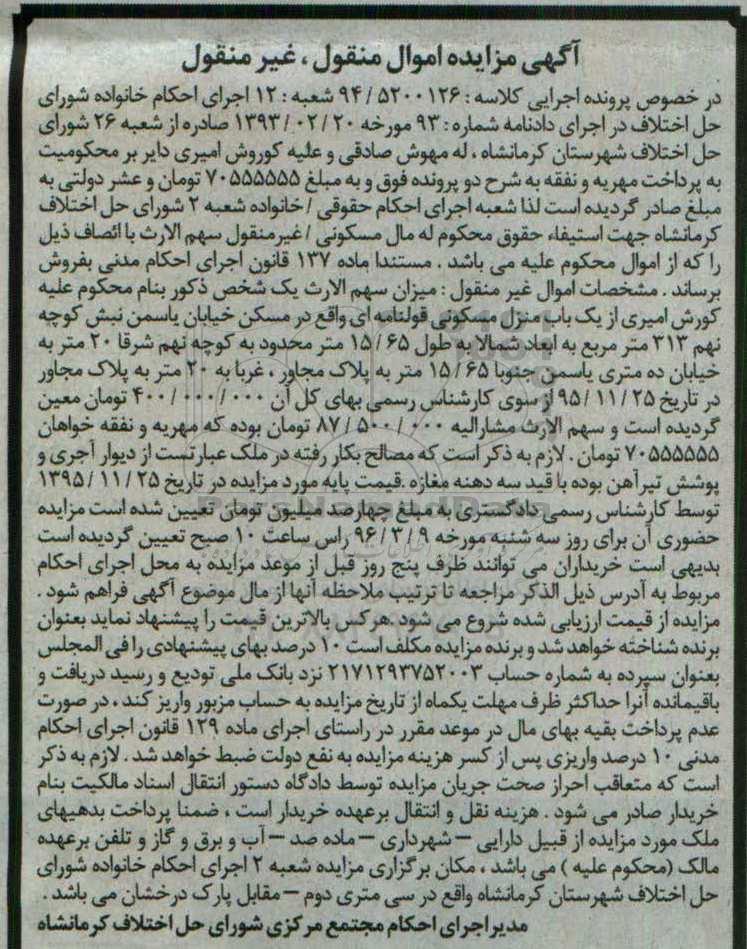 آگهی مزایده اموال منقول ، غیر منقول
در خصوص پرونده اجرایی کلاسه : ۵۲۰۰۱۲۶ / ۹۴ شعبه : ۱۲ اجرای احکام خانواده شورای
حل اختلاف در اجرای دادنامه شماره : ۹۳ مورخه ۲۰ / ۰۲ / ۱۳۹۳ صادره از شعبه ۲۶ شورای
حل اختلاف شهرستان کرمانشاه ، له مهوش صادقی و علیه کوروش امیری دایر بر محکومیت
به پرداخت مهریه و نفقه به شرح دو پرونده فوق و به مبلغ ۷۰۵۵۵۵۵۵ تومان و عشر دولتی به
مبلغ صادر گردیده است لذا شعبه اجرای احکام حقوقی / خانواده شعبه ۲ شورای حل اختلاف
کرمانشاه جهت استیفاء حقوق محکوم له مال مسکونی / غیرمنقول سهم الارث با ائصاف ذیل
را که از اموال محکوم علیه می باشد . مستندا ماده ۱۳۷ قانون اجرای احکام مدنی بفروش
برساند . مشخصات اموال غیر منقول : میزان سهم الارث یک شخص ذکور بنام محکوم علیه
کورش امیری از یک باب منزل مسکونی قولنامه ای واقع در مسکن خیابان یاسمن نبش کوچه
نهم ۳۱۳ متر مربع به ابعاد شمالا به طول ۶۵ / ۱۵ متر محدود به کوچه نهم شرقا ۲۰ متر به
خیابان ده متری یاسمن جنوبا ۶۵ / ۱۵ متر به پلاک مجاور ، غربا به ۲۰ متر به پلاک مجاور
در تاریخ ۲۵ / ۱۱ / ۹۵ از سوی کارشناس رسمی بهای کل آن ۰۰۰ / ۰۰۰ / ۴۰۰ تومان معین
گردیده است و سهم الارث مشارالیه ۰۰۰ / ۵۰۰ / ۸۷ تومان بوده که مهریه و نفقه خواهان
۷۰۵۵۵۵۵۵ تومان . لازم به ذکر است که مصالح بکار رفته در ملک عبارتست از دیوار آجری و
پوشش تیرآهن بوده با قید سه دهنه مغازه .قیمت پایه مورد مزایده در تاریخ ۲۵ / ۱۱ / ۱۳۹۵
توسط کارشناس رسمی دادگستری به مبلغ چهارصد میلیون تومان تعیین شده است مزایده
حضوری آن برای روز سه شنبه مورخه ۹ / ۳ / ۹۶ راس ساعت ۱۰ صبح تعیین گردیده است
بدیهی است خریداران می توانند ظرف پنج روز قبل از موعد مزایده به محل اجرای احکام
مربوط به آدرس ذیل الذکر مراجعه تا ترتیب ملاحظه آنها از مال موضوع آگهی فراهم شود .
مزایده از قیمت ارزیابی شده شروع می شود .هرکس بالاترین قیمت را پیشنهاد نماید بعنوان
برنده شناخته خواهد شد و برنده مزایده مکلف است ۱۰ درصد بهای پیشنهادی را فی المجلس
بعنوان سپرده به شماره حساب ۲۱۷۱۲۹۳۷۵۲۰۰۳ نزد بانک ملی تودیع و رسید دریافت و
باقیمانده آنرا حداکثر ظرف مهلت یکماه از تاریخ مزایده به حساب مزبور واریز کند ، در صورت
عدم پرداخت بقیه بهای مال در موعد مقرر در راستای اجرای ماده ۱۲۹ قانون اجرای احکام
مدنی ۱۰ درصد واریزی پس از کسر هزینه مزایده به نفع دولت ضبط خواهد شد . لازم به ذکر
است که متعاقب احراز صحت جریان مزایده توسط دادگاه دستور انتقال اسناد مالکیت بنام
خریدار صادر می شود . هزینه نقل و انتقال برعهده خریدار است ، ضمنا پرداخت بدهیهای
ملک مورد مزایده از قبیل دارایی – شهرداری – ماده صد – آب و برق و گاز و تلفن برعهده
مالک (محکوم علیه ) می باشد ، مکان برگزاری مزایده شعبه ۲ اجرای احکام خانواده شورای
حل اختلاف شهرستان کرمانشاه واقع در سی متری دوم – مقابل پارک درخشان می باشد .
مدیر اجرای احکام مجتمع مرکزی شورای حل اختلاف کرمانشاه